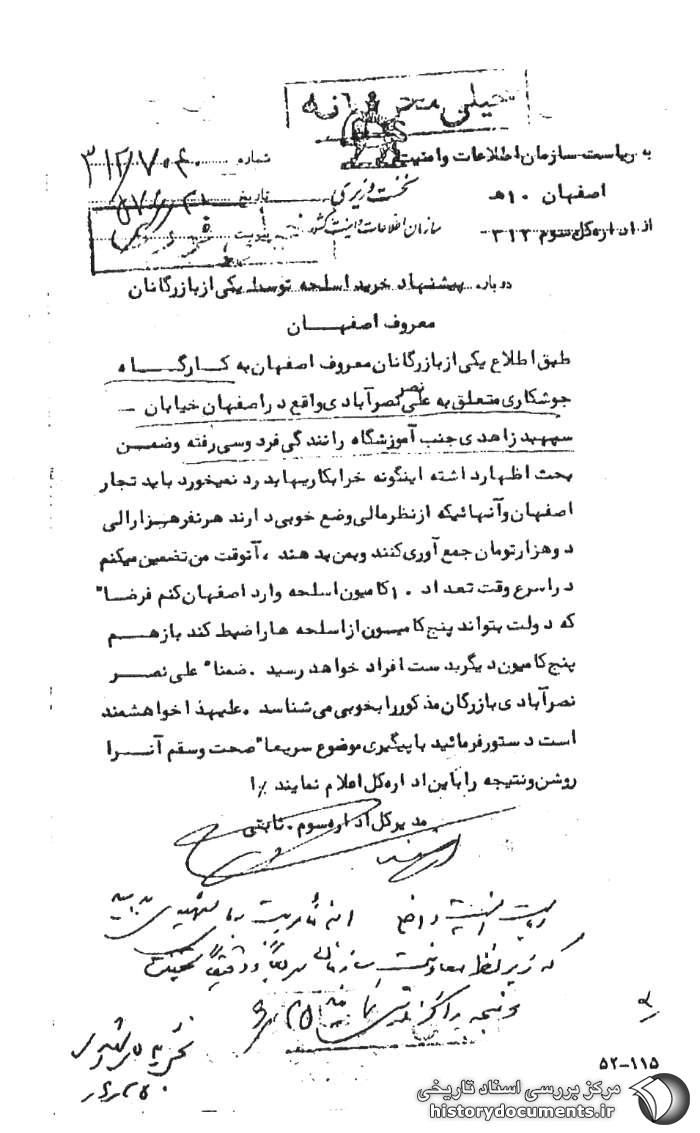 خیلی محرمانه
به ریاست سازمان اطلاعات و امنیت
شماره ۳۱۲/۷۰۴۰
نخست وزیری
اصفهان ۱۰هـ
تاریخ
سازمان اطلاعات و امنیت کشور
از اداره کل سوم ۳۱۲
پیوست
درباره پیشنهاد خرید اسلحه توسط یکی از بازرگانان
معروف اصفهان
طبق اطلاع یکی از بازرگانان معروف اصفهان به کارگاه
جوشکاری متعلق به علی نصر نصرآبادی واقع در اصفهان خیابان –
سپهبد زاهدی جنب آموزشگاه رانندگی فردوسی رفته و ضمن
بحث اظهار داشته اینگونه خرابکاریها بدرد نمیخورد باید تجار
اصفهان و آنهائیکه از نظر مالی وضع خوبی دارند هر نفر هزار الی
دو هزار تومان جمع آوری کنند و بمن بدهند ، آنوقت من تضمین میکنم
در اسرع وقت تعداد ۱۰ کامیون اسلحه وارد اصفهان کنم فرضا"
که دولت بتواند پنج کامیون از اسلحه ها را ضبط کند بازهم
پنج کامیون دیگر بدست افراد خواهد رسید . ضمنا" علی نصر
نصرآبادی بازرگان مذکور را بخوبی می شناسد . علیهذا خواهشمند
است دستور فرمائید با پیگیری موضوع سریعا" صحت و سقم آنرا
روشن و نتیجه را باین اداره کل اعلام نمایند ٪ا
مدیرکل اداره سوم . ثابتی
که زیر نظر معاونت سازمان سریعاً و دقیقاً
و نتیجه را
۵۲-۱۱۵
مرکز بررسی اسناد تاریخی
historydocuments.ir